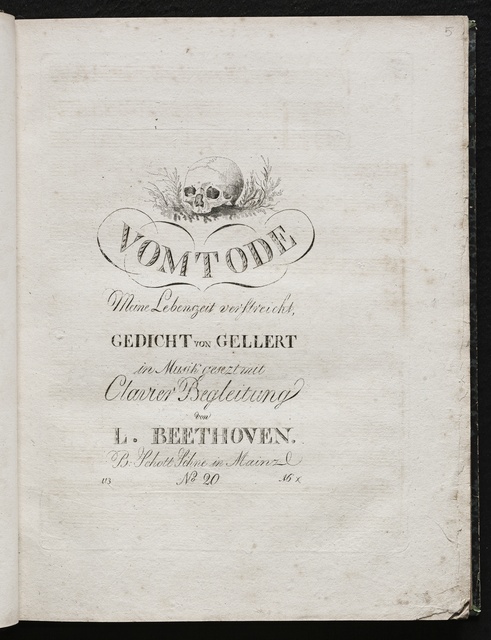 5
VOM TODE
Meine Lebenszeit verstreicht,
GEDICHT VON GELLERT
in Musik gesezt mit
Clavier Begleitung
von
L. BEETHOVEN.
B. Schott Söhne in Mainz
No 20